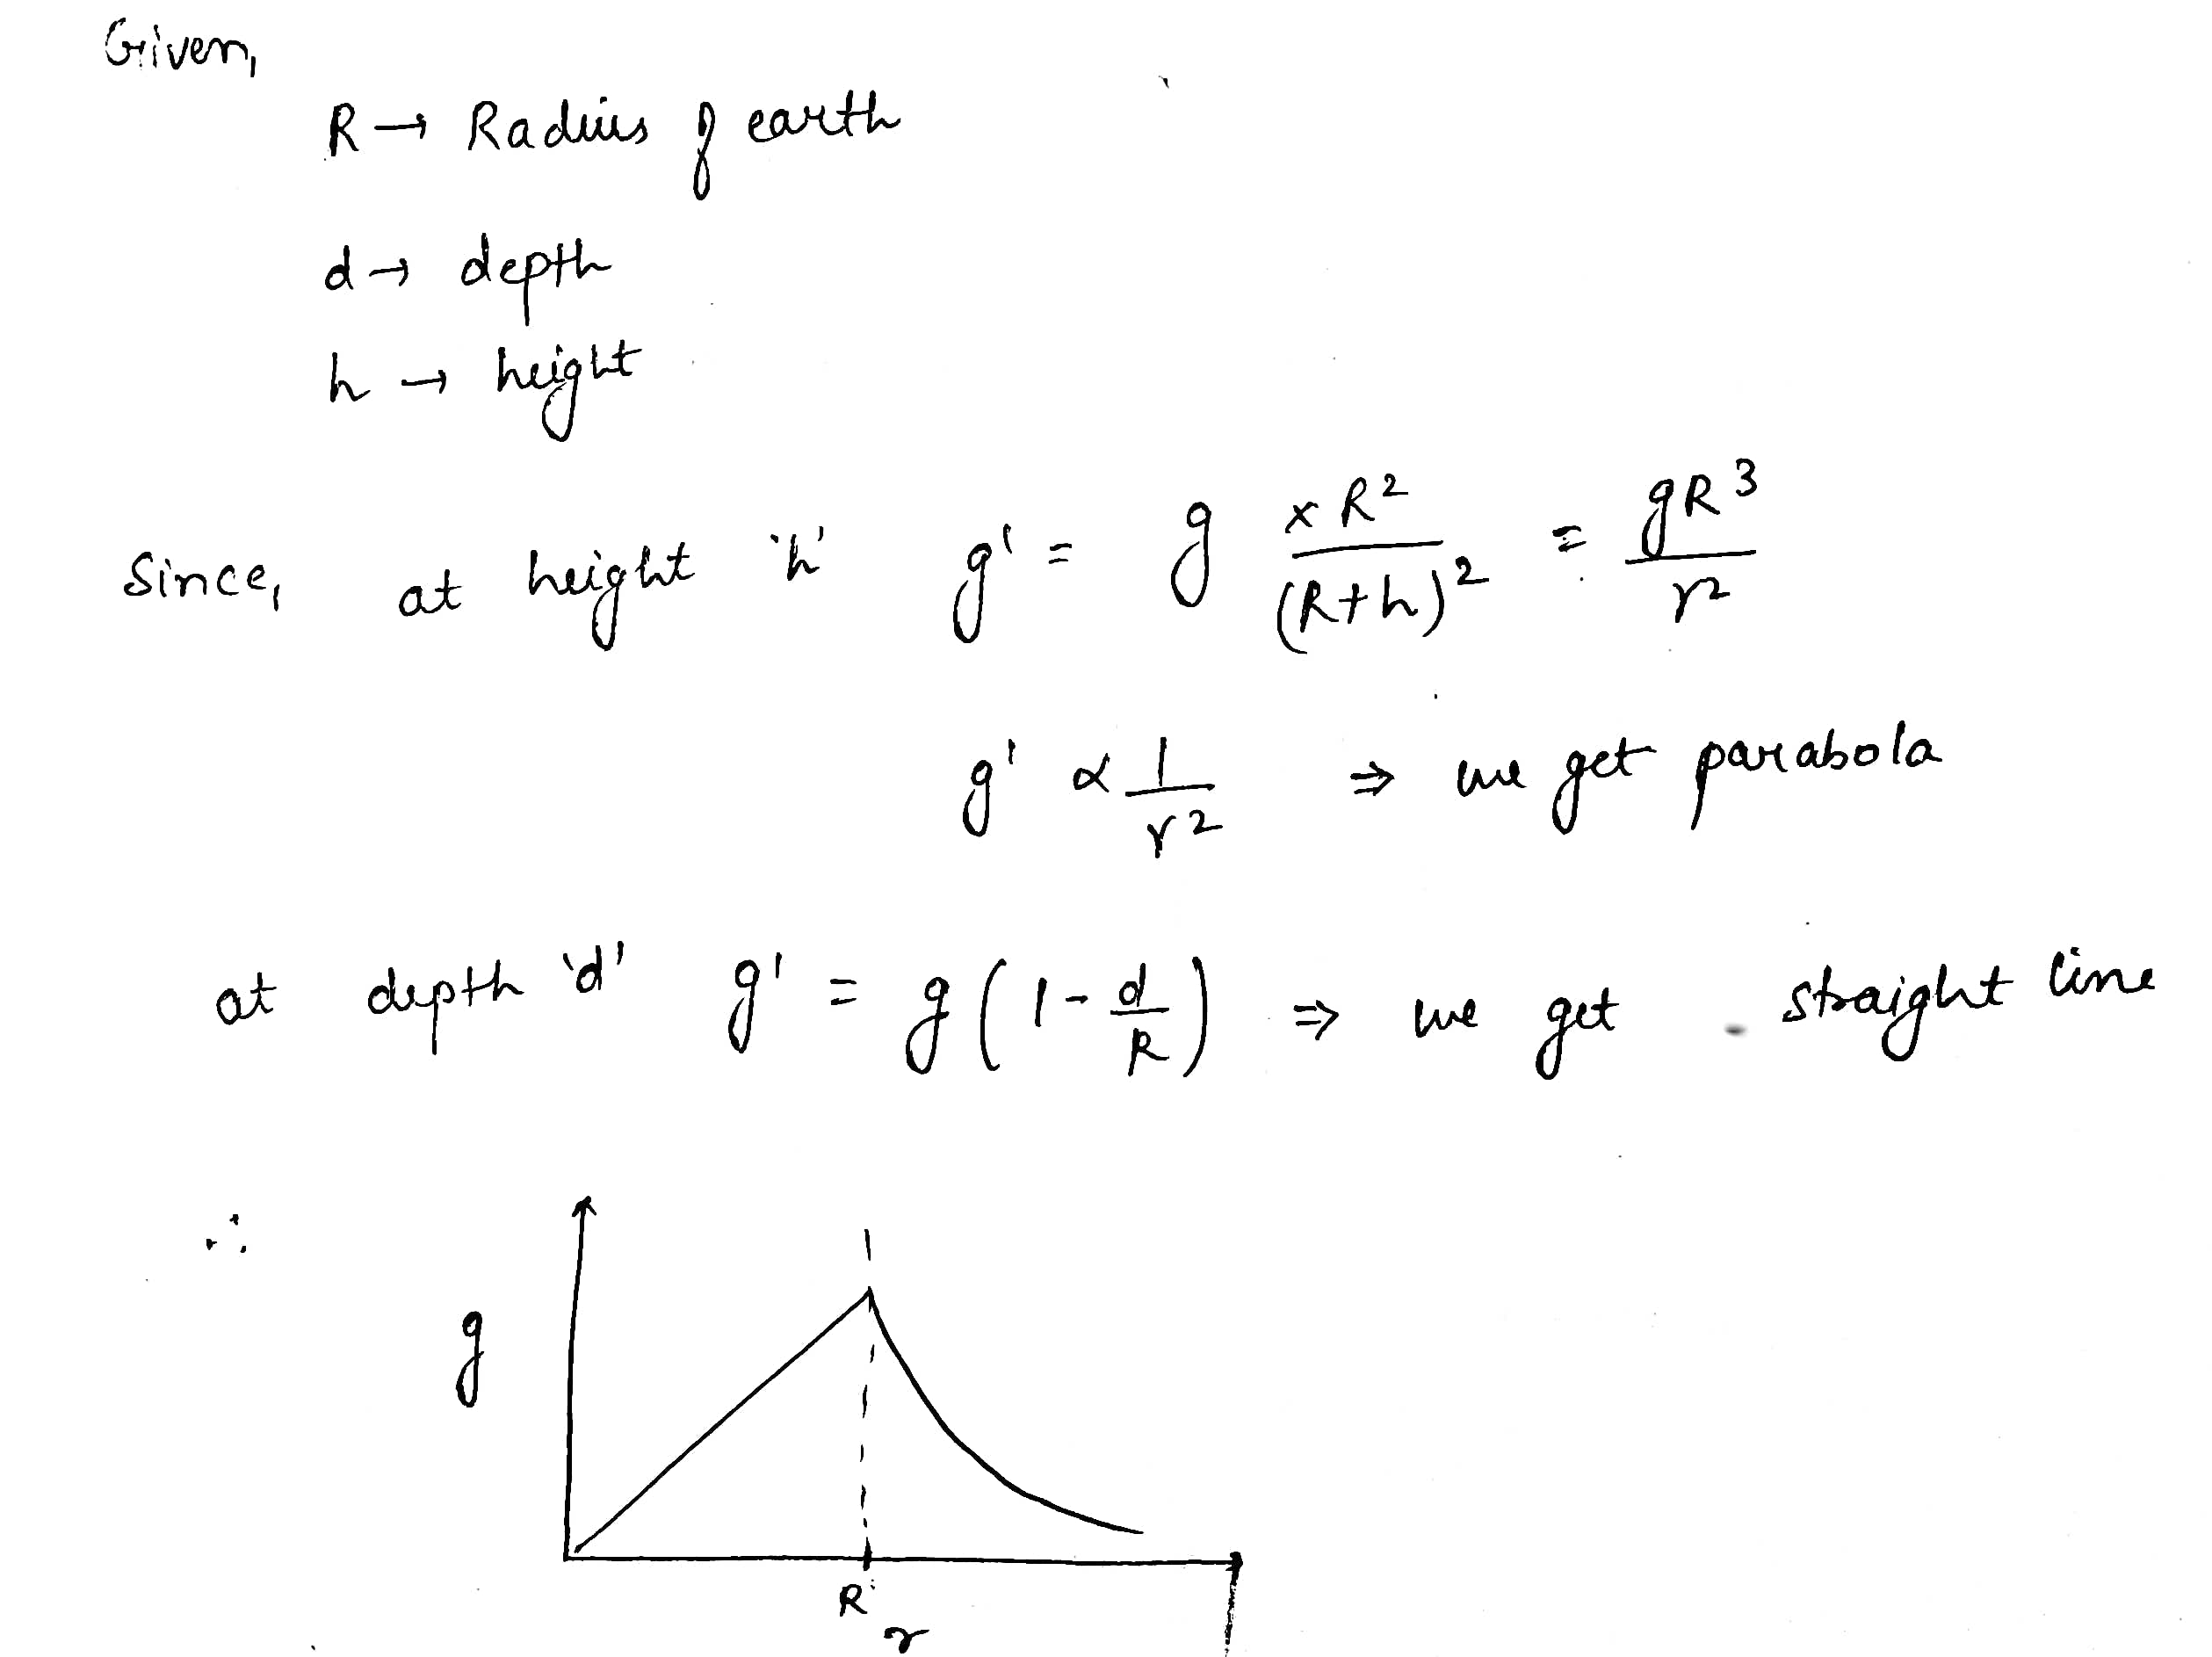 Given,
R → Radius of earth
d → depth
h → height
Since, at height 'h' g' = g × R² / (R+h)² = gR³ / r²
g' ∝ 1 / r² ⇒ we get parabola
at depth 'd' g' = g(1 - d/R) ⇒ we get straight line
∴
g
R
r